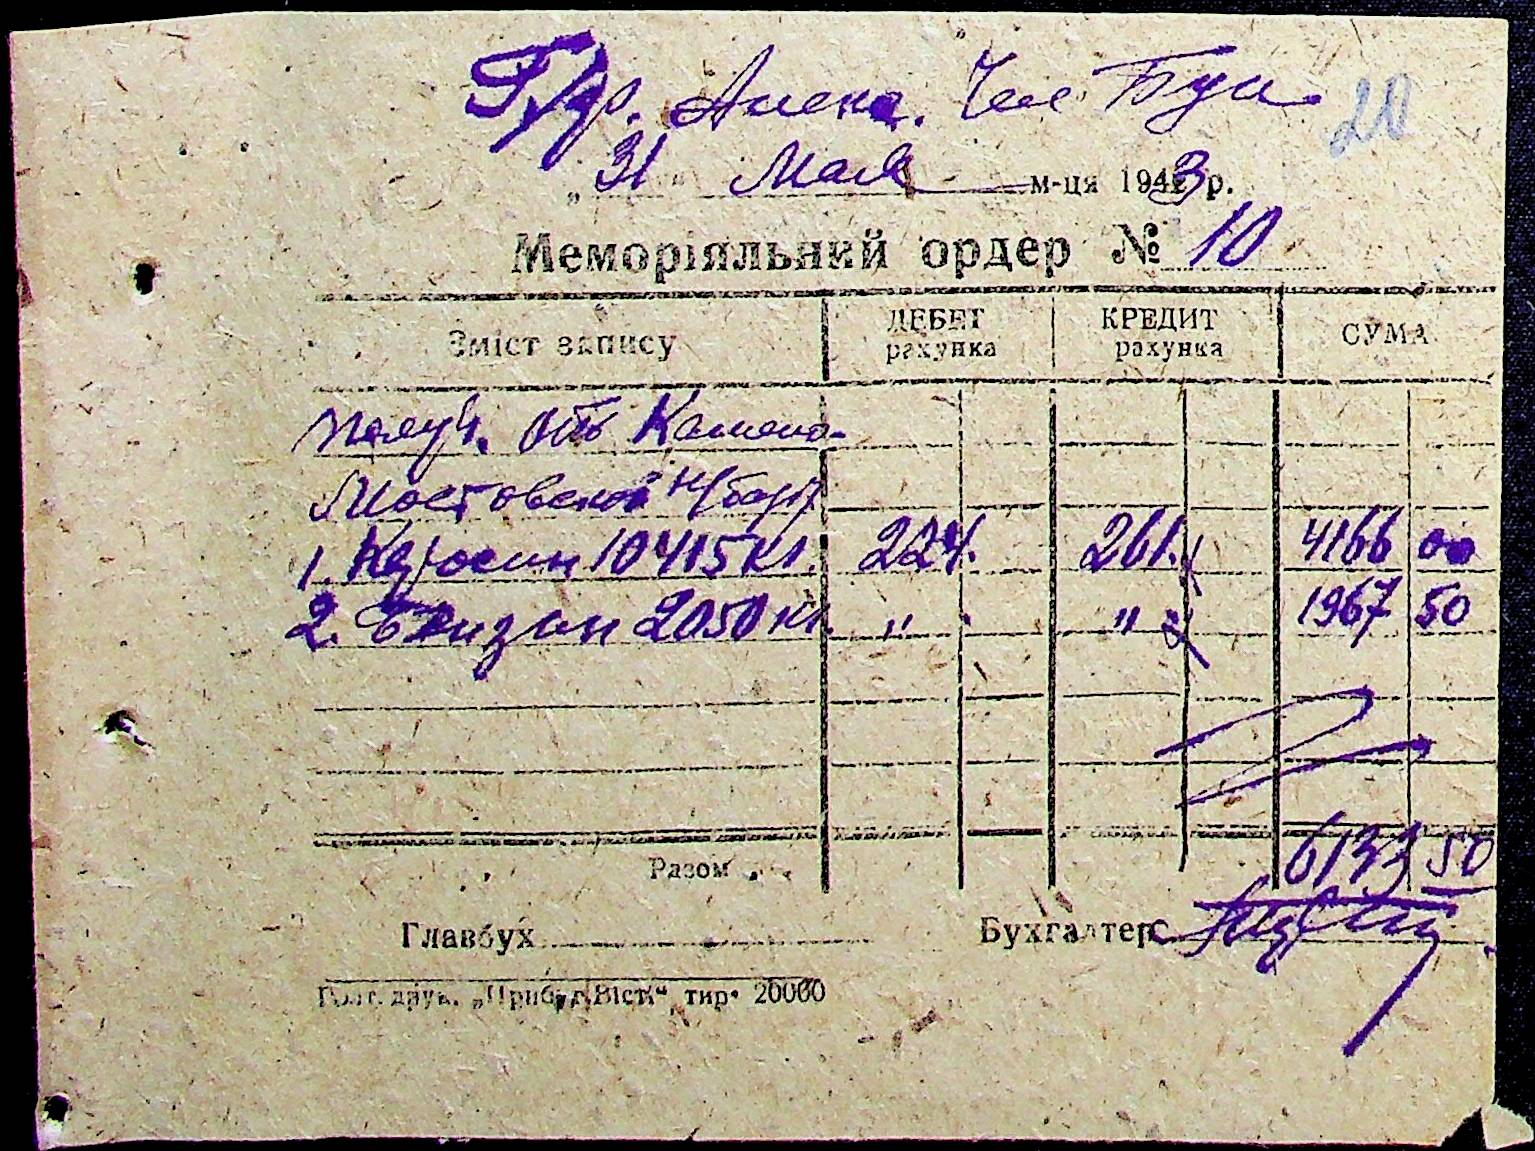 20
„ 31 " Мая м-ця 1943 р.
Меморіяльний ордер № 10
Зміст запису ДЕБЕТ рахунка КРЕДИТ рахунка СУМА
Получ. отъ Камено-
Мостовской н/базы
1. Керосин 10415 кг. 224. 261. 4166 00
2. Бензин 2050 кг. " " 1967 50
Разом . 6133 50
Главбух Бухгалтер
друк. „Прибуг. Вісті“ тир. 20000